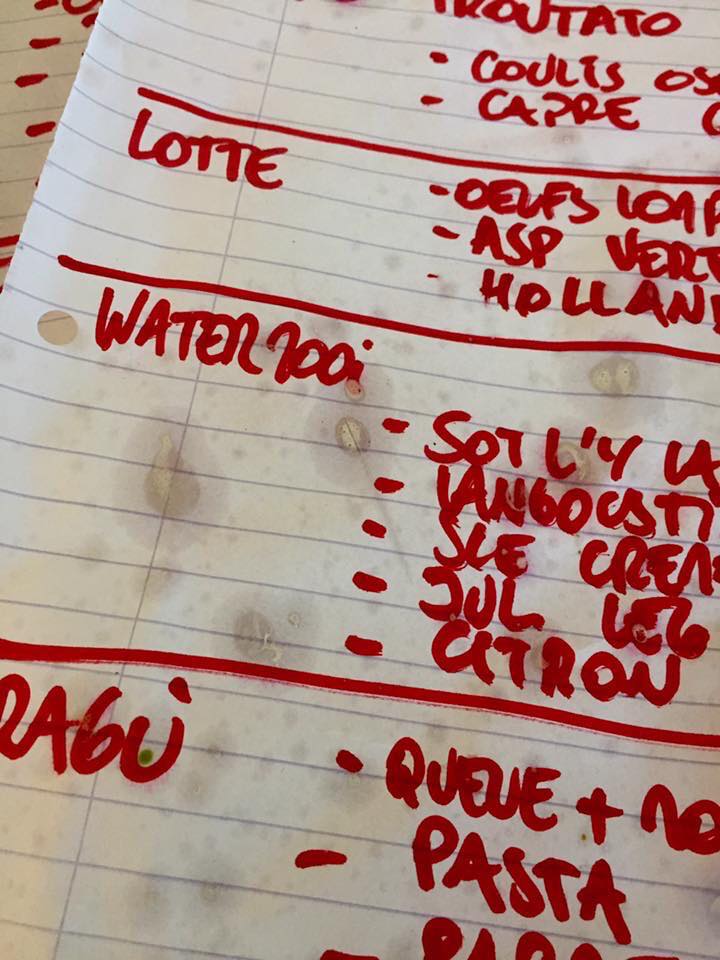 - COULIS
- CAPRE
LOTTE
- OEUFS
- ASP VERT
- HOLLAN
WATERZOOi
- SOT L'Y LA
- LANGOUSTI
- SCE CREM
- JUL LEG
- CITRON
RAGÙ
- QUEUE +
- PASTA